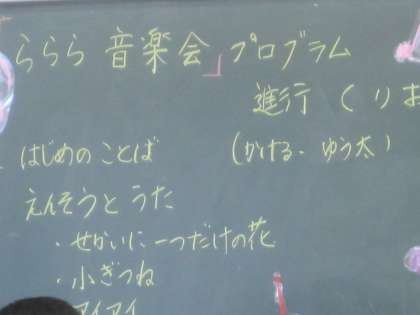 ららら 音楽会」プログラム
進行 くりお
はじめの ことば (かける・ゆう太)
えんそうと うた
・せかいに一つだけの花
・小ぎつね
アイアイ